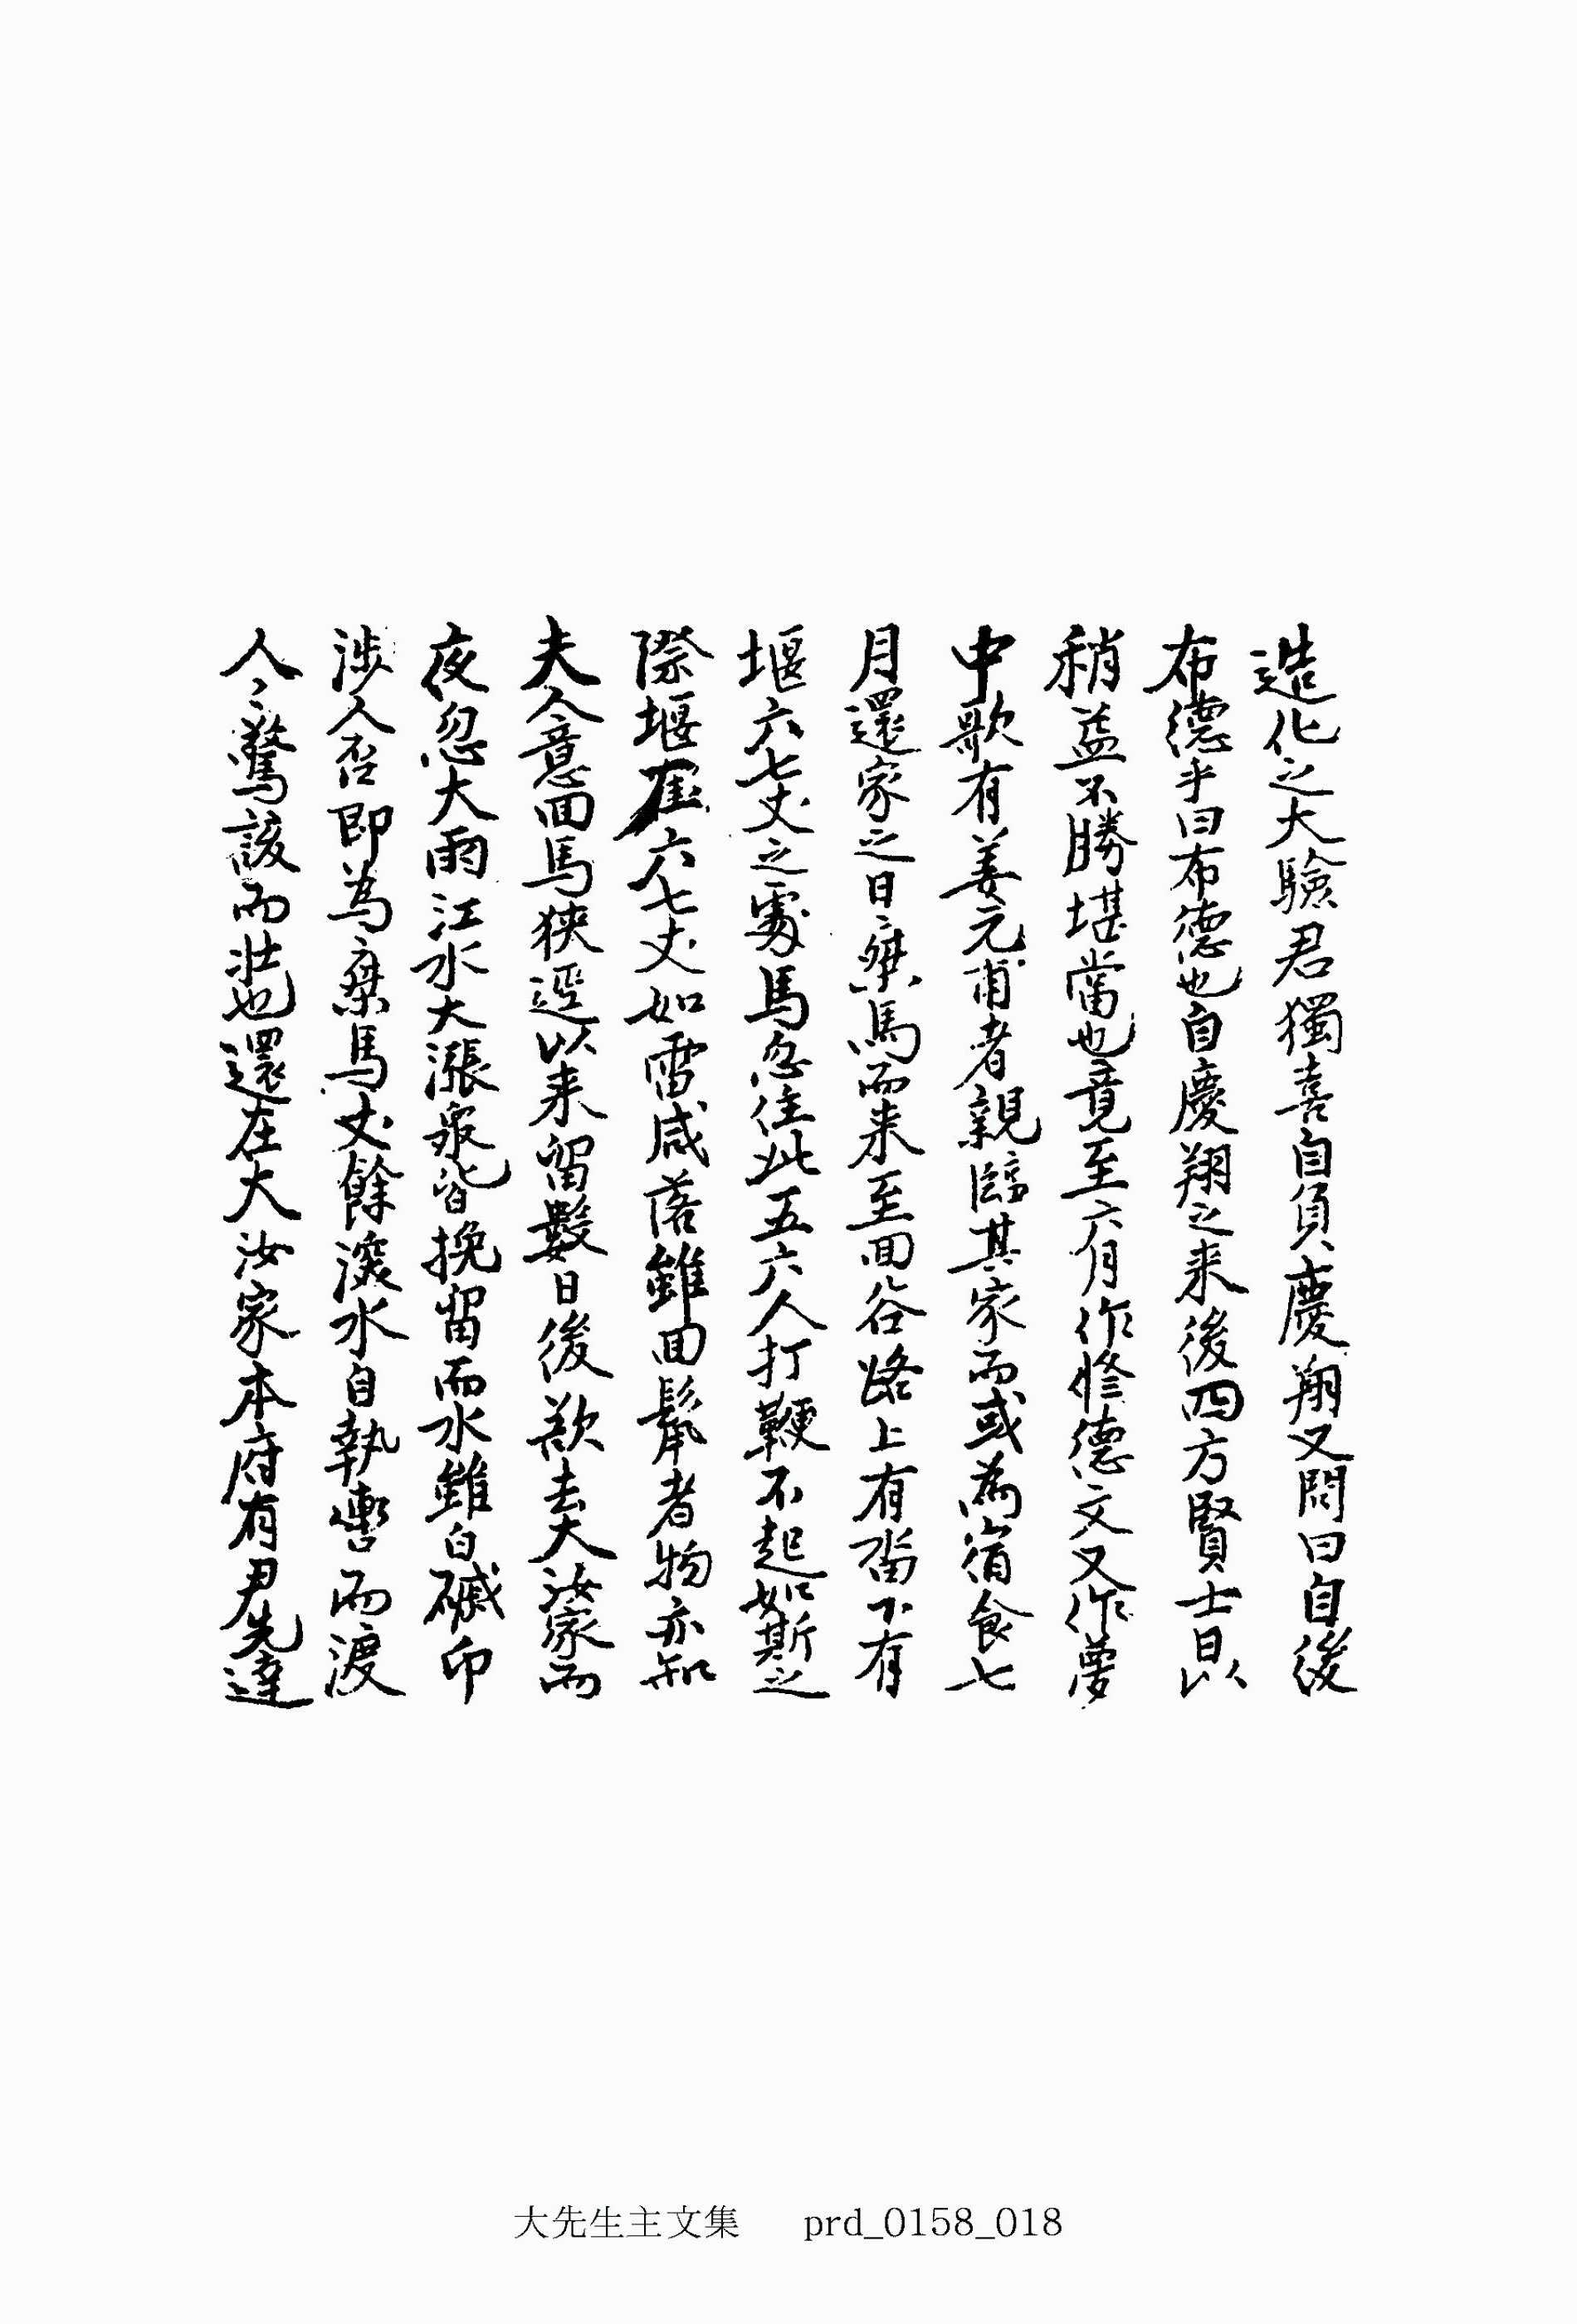 造化之大驗君獨喜自負慶翔又問曰自後
布德乎曰布德也自慶翔之来後四方賢士日以
稍益不勝堪當也竟至六月作修德文又作夢
中歌有姜元甫者親臨其家而或為宿食七
月還家之日乗馬而来至回谷路上有畓下有
堰六七丈之處馬忽住此五六人打鞭不起如斯之
際堰崖六七丈如雷咸落雖回鬣者物亦知
夫人意回馬狹逕以来留數日後欲去大汝家而
夜忽大雨江水大漲衆皆挽留而水雖白碱印
涉人否即為乗馬丈餘深水自執轡而渡
人〻驚該而壯也還在大汝家本府有尹先達
大先生主文集 prd_0158_018